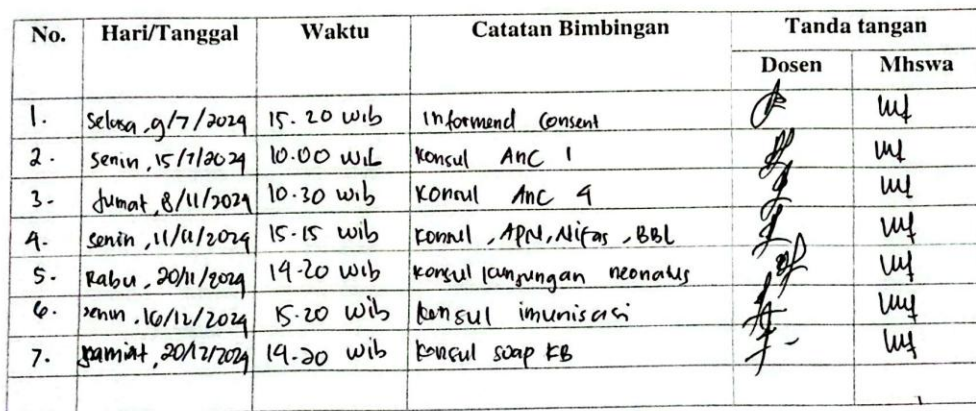 No. Hari/Tanggal Waktu Catatan Bimbingan Tanda tangan
Dosen Mhswa
1. Selasa, 9/7/2024 15.20 wib Informend Consent
2. Senin, 15/7/2024 10.00 WIb Konsul AnC 1
3. Jumat, 8/11/2024 10.30 wib Konsul AnC 4
4. Senin, 11/11/2024 15-15 wib Konsul, APN, Nifas, BBL
5. Rabu, 20/11/2024 14-20 wib Konsul kunjungan neonatus
6. Senin. 16/12/2024 15.20 wib Konsul imunisasi
7. 20/12/2024 14.20 wib Konsul soap KB